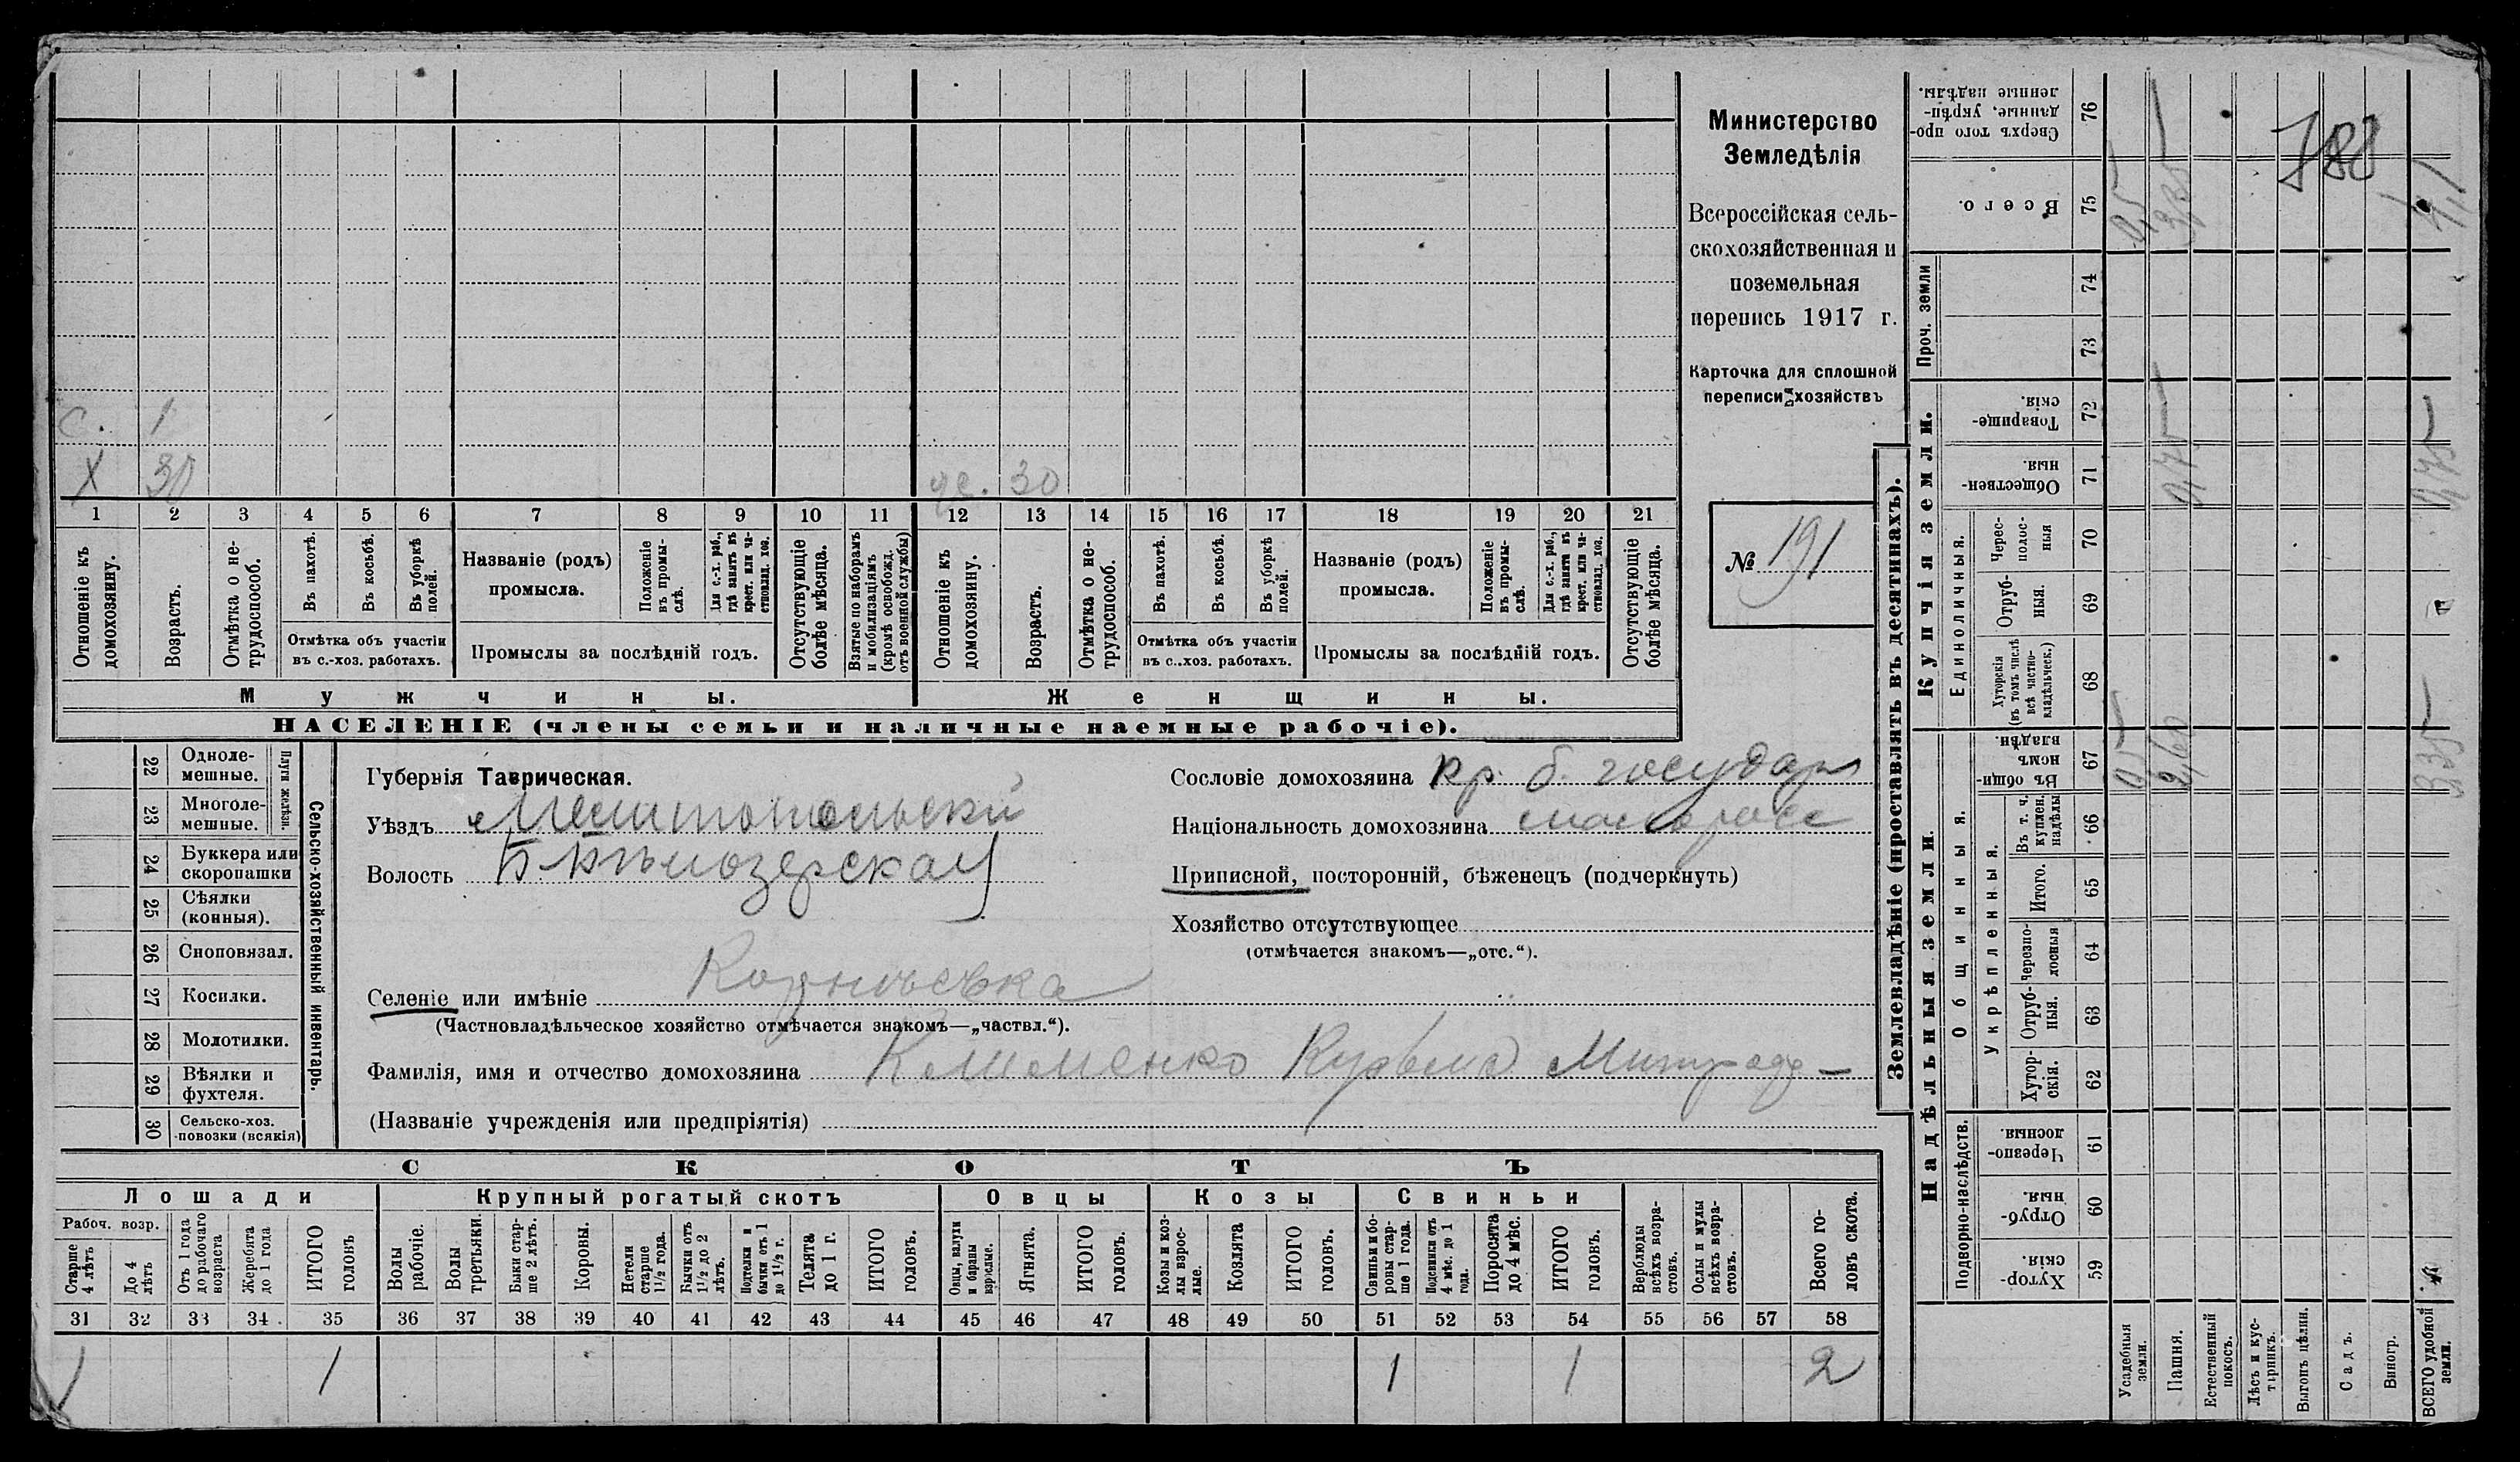 Министерство
Земледѣлія
Всероссійская сель-
скохозяйственная и
поземельная
перепись 1917 г.
Карточка для сплошной
переписи хозяйствъ
№ 191
788
с. 1
X 30
30
1 2 3 4 5 6 7 8 9 10 11 12 13 14 15 16 17 18 19 20 21
Отношеніе къ домохозяину.
Возрастъ.
Отмѣтка о не-трудоспособ.
Въ пахотѣ.
Въ косьбѣ.
Въ уборкѣ полей.
Отмѣтка объ участіи
въ с.-хоз. работахъ.
Названіе (родъ)
промысла.
Положеніе въ промы-слѣ.
Для с.-х. раб., гдѣ занятъ въ крест. или ча-стновлад. хоз.
Промыслы за послѣдній годъ.
Отсутствующіе болѣе мѣсяца.
Взятые по наборамъ и мобилизаціямъ (кромѣ освобожд. отъ военной службы)
Отношеніе къ домохозяину.
Возрастъ.
Отмѣтка о не-трудоспособ.
Въ пахотѣ.
Въ косьбѣ.
Въ уборкѣ полей.
Отмѣтка объ участіи
въ с.-хоз. работахъ.
Названіе (родъ)
промысла.
Положеніе въ промы-слѣ.
Для с.-х. раб., гдѣ занята въ крест. или ча-стновлад. хоз.
Промыслы за послѣдній годъ.
Отсутствующіе болѣе мѣсяца.
Мужчины.
Женщины.
НАСЕЛЕНІЕ (члены семьи и наличные наемные рабочіе).
22 Одноле-мешные.
23 Многоле-мешные.
Плуги желѣзн.
24 Буккера или скоропашки
25 Сѣялки (конныя).
26 Сноповязал.
27 Косилки.
28 Молотилки.
29 Вѣялки и фухтеля.
30 Сельско-хоз. повозки (всякія)
Сельско-хозяйственный инвентарь.
Губернія Таврическая.
Уѣздъ Мелитопольскій
Волость Бѣлозерская
Сословіе домохозяина кр. б. государ
Національность домохозяина малоросс
Приписной, посторонній, бѣженецъ (подчеркнуть)
Хозяйство отсутствующее
(отмѣчается знакомъ—„отс.“).
Селеніе или имѣніе
(Частновладѣльческое хозяйство отмѣчается знакомъ—„частвл.“).
Фамилія, имя и отчество домохозяина Клименко Кузьма
(Названіе учрежденія или предпріятія)
СКОТЪ
Лошади
Крупный рогатый скотъ
Овцы
Козы
Свиньи
Рабоч. возр.
Старше 4 лѣтъ
До 4 лѣтъ
Отъ 1 года до рабочаго возраста
Жеребята до 1 года
ИТОГО головъ
Волы рабочіе.
Волы третьяки.
Быки стар-ше 2 лѣтъ.
Коровы.
Нетели старше 1½ года.
Бычки отъ 1½ до 2 лѣтъ.
Подтелки и бычки отъ 1 до 1½ г.
Телята до 1 г.
ИТОГО головъ.
Овцы, валухи и бараны взрослые.
Ягнята.
ИТОГО головъ.
Козы и коз-лы взрос-лые.
Козлята
ИТОГО головъ.
Свиньи и бо-ровы стар-ше 1 года.
Подсвинки отъ 4 мѣс. до 1 года.
Поросята до 4 мѣс.
ИТОГО головъ.
Верблюды всѣхъ возра-стовъ.
Ослы и мулы всѣхъ возра-стовъ.
Всего го-ловъ скота.
31 32 33 34 35 36 37 38 39 40 41 42 43 44 45 46 47 48 49 50 51 52 53 54 55 56 57 58
1 1 1 1 2
Землевладѣніе (проставлять въ десятинахъ).
Надѣльныя земли.
Купчія земли.
Проч. земли
Подворно-наслѣдств.
Общинныя.
Укрѣпленныя.
Единоличныя.
Сверхъ того про-данные, укрѣп-ленные надѣлы. 76
Всего. 75
74
73
Товарище-скія. 72
Обществен-ныя. 71
Черес-полос-ныя 70
Отруб-ныя. 69
Хуторскія (въ томъ числѣ всѣ частно-владѣльческ.) 68
Въ общин-номъ владѣн. 67
Въ т. ч. куплен. надѣлы 66
Итого. 65
Черезпо-лосныя 64
Отруб-ныя. 63
Хутор-скія. 62
Черезпо-лосныя. 61
Отруб-ныя. 60
Хутор-скія. 59
Усадебныя земли.
Пашня.
Естественный покосъ.
Лѣсъ и кус-тарникъ.
Выгонъ цѣлин.
Садъ.
Виногр.
ВСЕГО удобной земли.